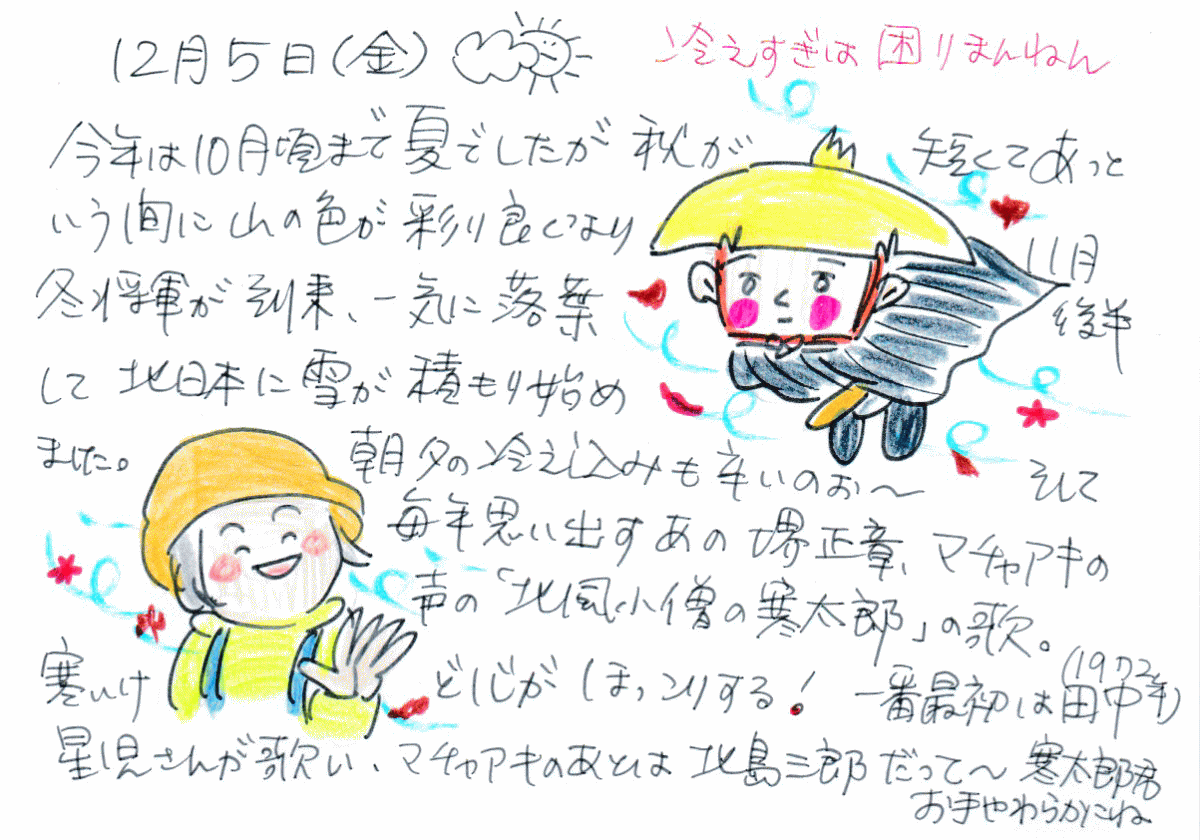 12月5日(金)
冷えすぎは困りまんねん
今年は10月頃まで夏でしたが 秋が 短くてあっと
いう間に山の色が彩り良くなり 11月
冬将軍が到来、一気に落葉 後半
して北日本に雪が積もり始め
ました。 朝夕の冷え込みも辛いのお〜 そして
毎年思い出すあの堺正章、マチャアキの
声の「北風小僧の寒太郎」の歌。
寒いけどじがほっこりする! 一番最初は田中(1972年)
星児さんが歌い、マチャアキのあとは北島三郎だって〜 寒太郎君
お手やわらかにね